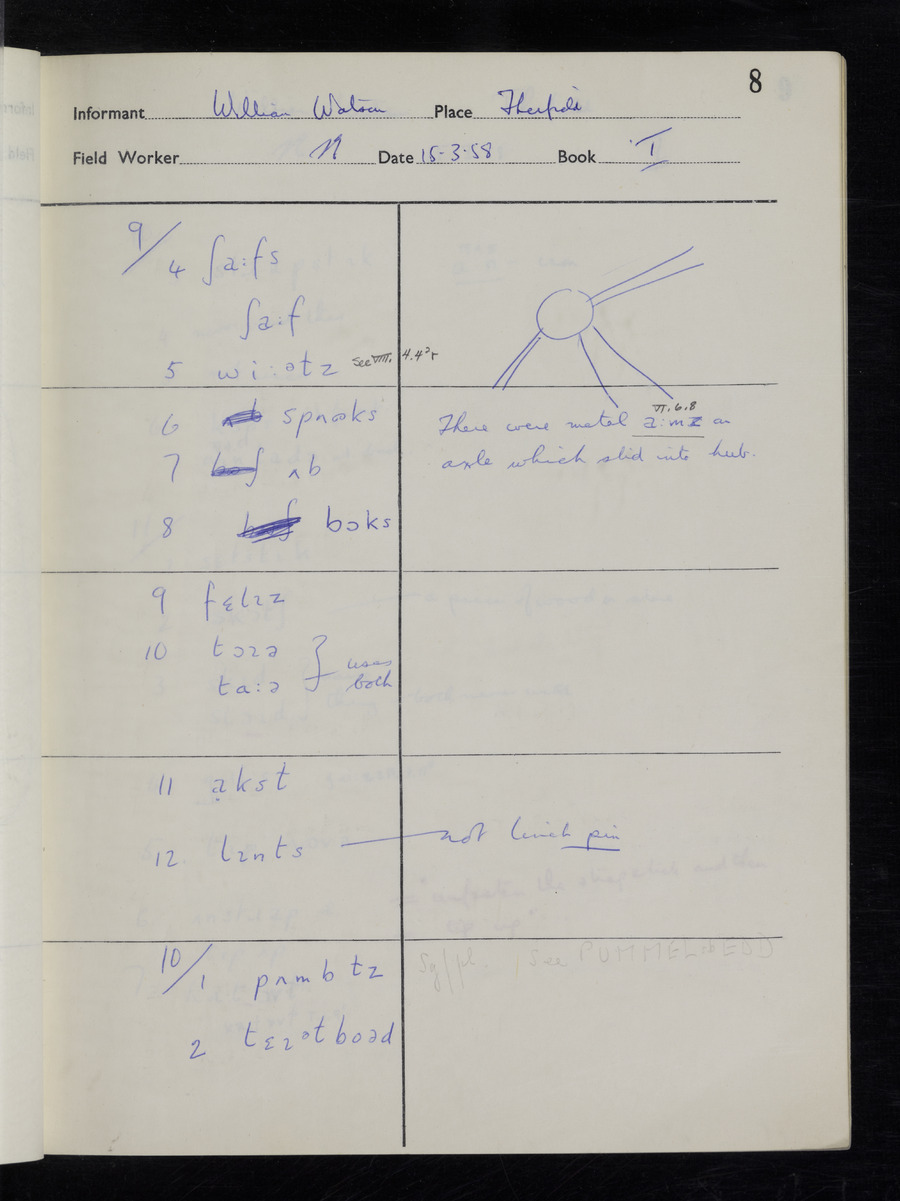 8
Informant William Watson Place Therfield
Field Worker N Date 15-3-58 Book I
9/
4 ʃa:fs
ʃa:f
5 wi:əɫz see VIII. 4.4²r
6 spɹəʊks
7 ʌb
8 bɔks
There were metal a:mz on VI.6.8
axle which slid into hub.
9 fɛlɪz
10 tɔɪə
ta:ə } uses both
11 akst
12 lɪnts — not linch pin
10/
1 pʌmbɫz Sg/pl. (see PUMMEL
2 tɛɪəɫboəd